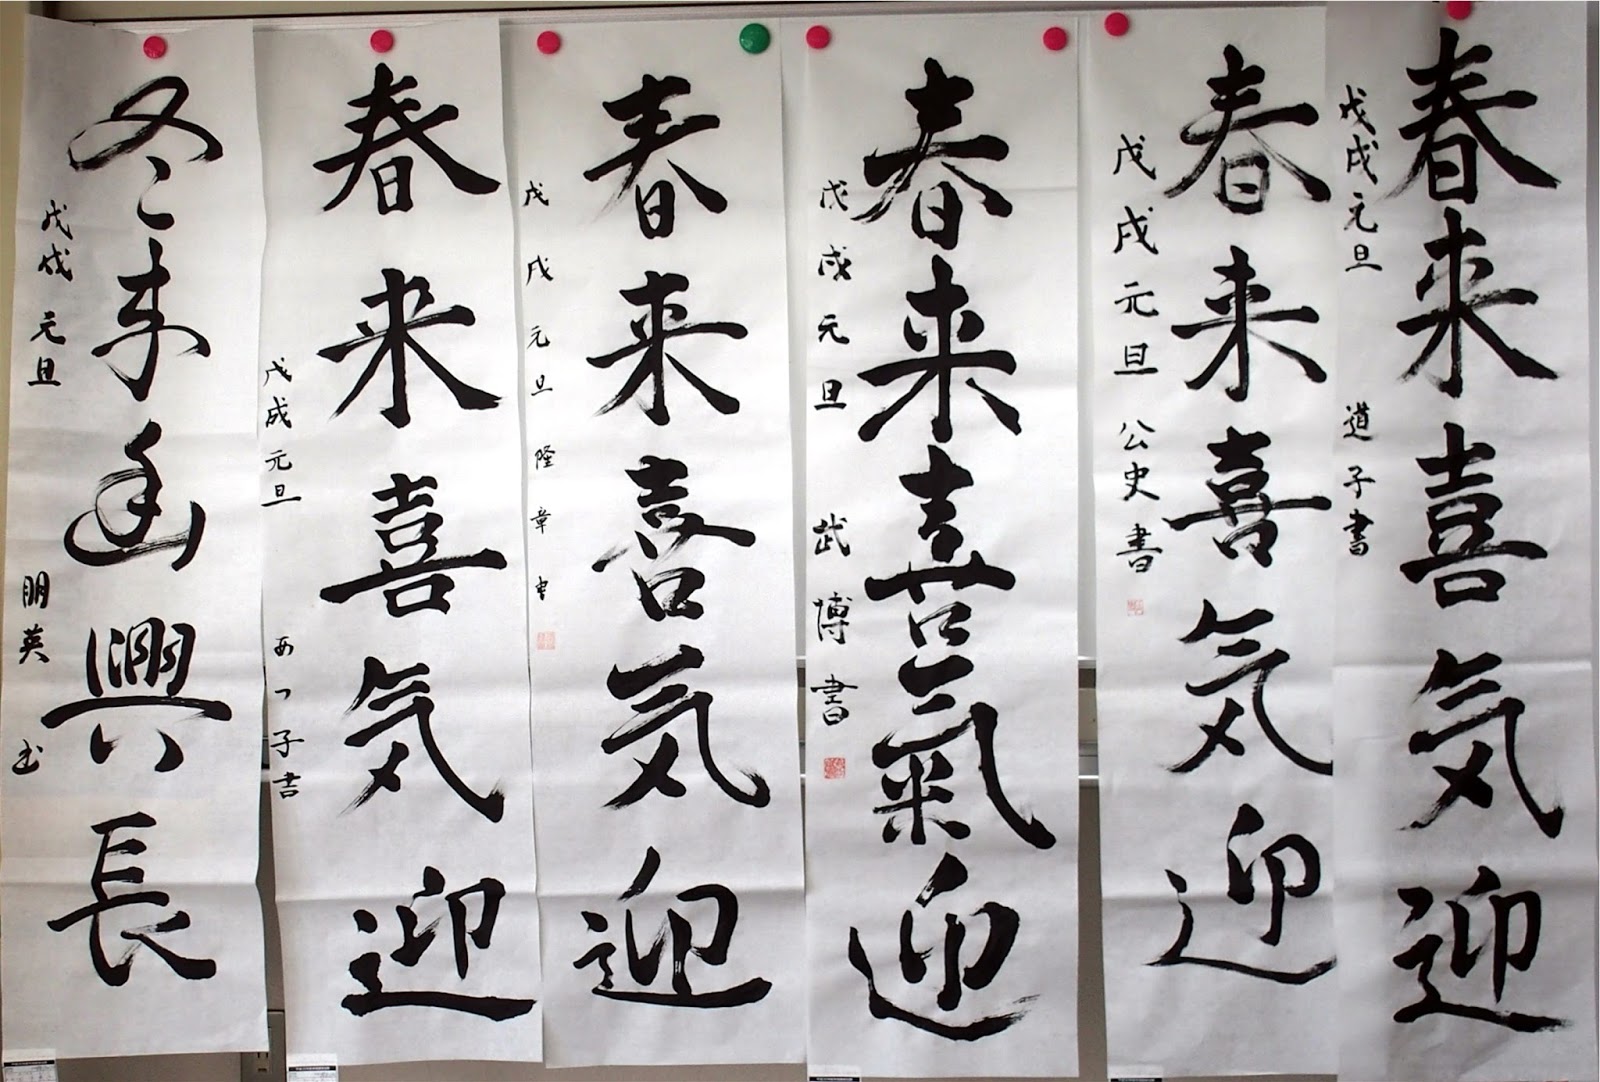 春来喜気迎
戊戌元旦 道子書
春来喜気迎
戊戌元旦 公史書
春来喜氣迎
戊戌元旦 武博書
春来喜気迎
戊戌元旦 隆章書
春来喜気迎
戊戌元旦 あつ子書
冬来幽興長
戊戌元旦 朋英書